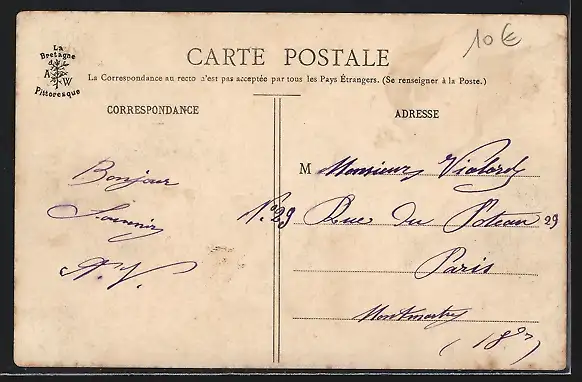 La
Bretagne
A W
Pittoresque
10€
CARTE POSTALE
La Correspondance au recto n'est pas acceptée par tous les Pays Étrangers. (Se renseigner à la Poste.)
CORRESPONDANCE
ADRESSE
Bonjour
Souvenir
A. V.
M Monsieur
N° 29 Rue du Poteau 29
Paris
Montmartre
(18e)